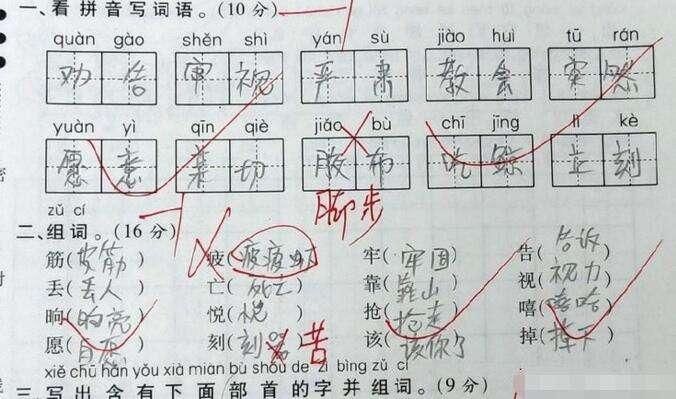 一、看拼音写词语。(10分)
quàn gào shěn shì yán sù jiào huì tū rán
劝告 审视 严肃 教会 突然
yuàn yì qīn qiè jiǎo bù chī jīng lì kè
愿意 亲切 吃鲸 立刻
脚步
zǔ cí
二、组词。(16分)
筋(皮筋) 疲(疲疲) 牢(牢固) 告(告诉)
丢(丢人) 亡(死亡) 靠(靠山) 视(视力)
晌(晌亮) 悦( ) 抢(抢走) 嘻(嘻哈)
愿(自愿) 刻(刻 苦 该(该你了) 掉(掉下)
xiě chū hán yǒu xià miàn bù shǒu de zì bìng zǔ cí
三、写出含有下面部首的字并组词。(9分)